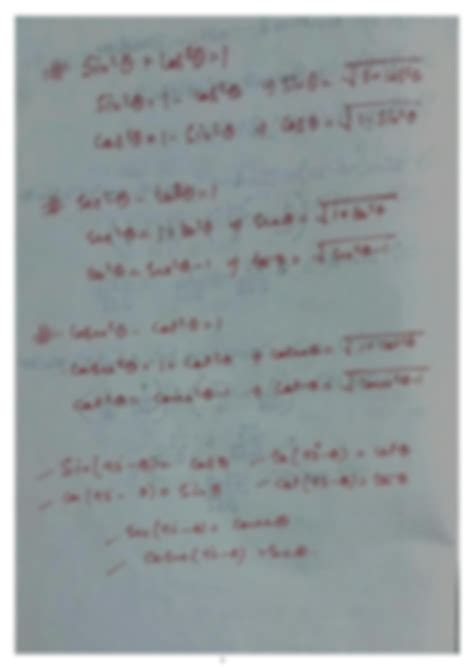 Sin²θ + Cos²θ = 1
Sin²θ = 1 - Cos²θ ⇒ Sinθ = √1-Cos²θ
Cos²θ = 1 - Sin²θ ⇒ Cosθ = √1-Sin²θ
Sec²θ - tan²θ = 1
Sec²θ = 1+tan²θ ⇒ Secθ = √1+tan²θ
tan²θ = Sec²θ-1 ⇒ tanθ = √Sec²θ-1
Cosec²θ - Cot²θ = 1
Cosec²θ = 1+Cot²θ ⇒ Cosecθ = √1+Cot²θ
Cot²θ = Cosec²θ-1 ⇒ Cotθ = √Cosec²θ-1
Sin( -θ) = Cosθ tan( -θ) = Cotθ
Cos( - θ) = Sinθ Cot( -θ) = tanθ
Sec( -θ) = Cosecθ
Cosec( -θ) = Secθ